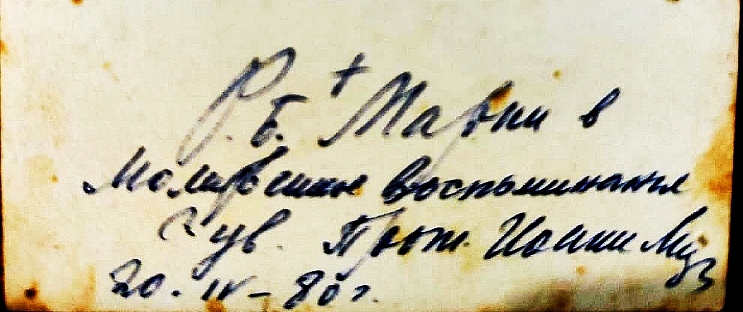 Р. Б. + Марии в
Молитвенное воспоминание
г ув. Прот. Иоанн Муз
20-IV-80 г.